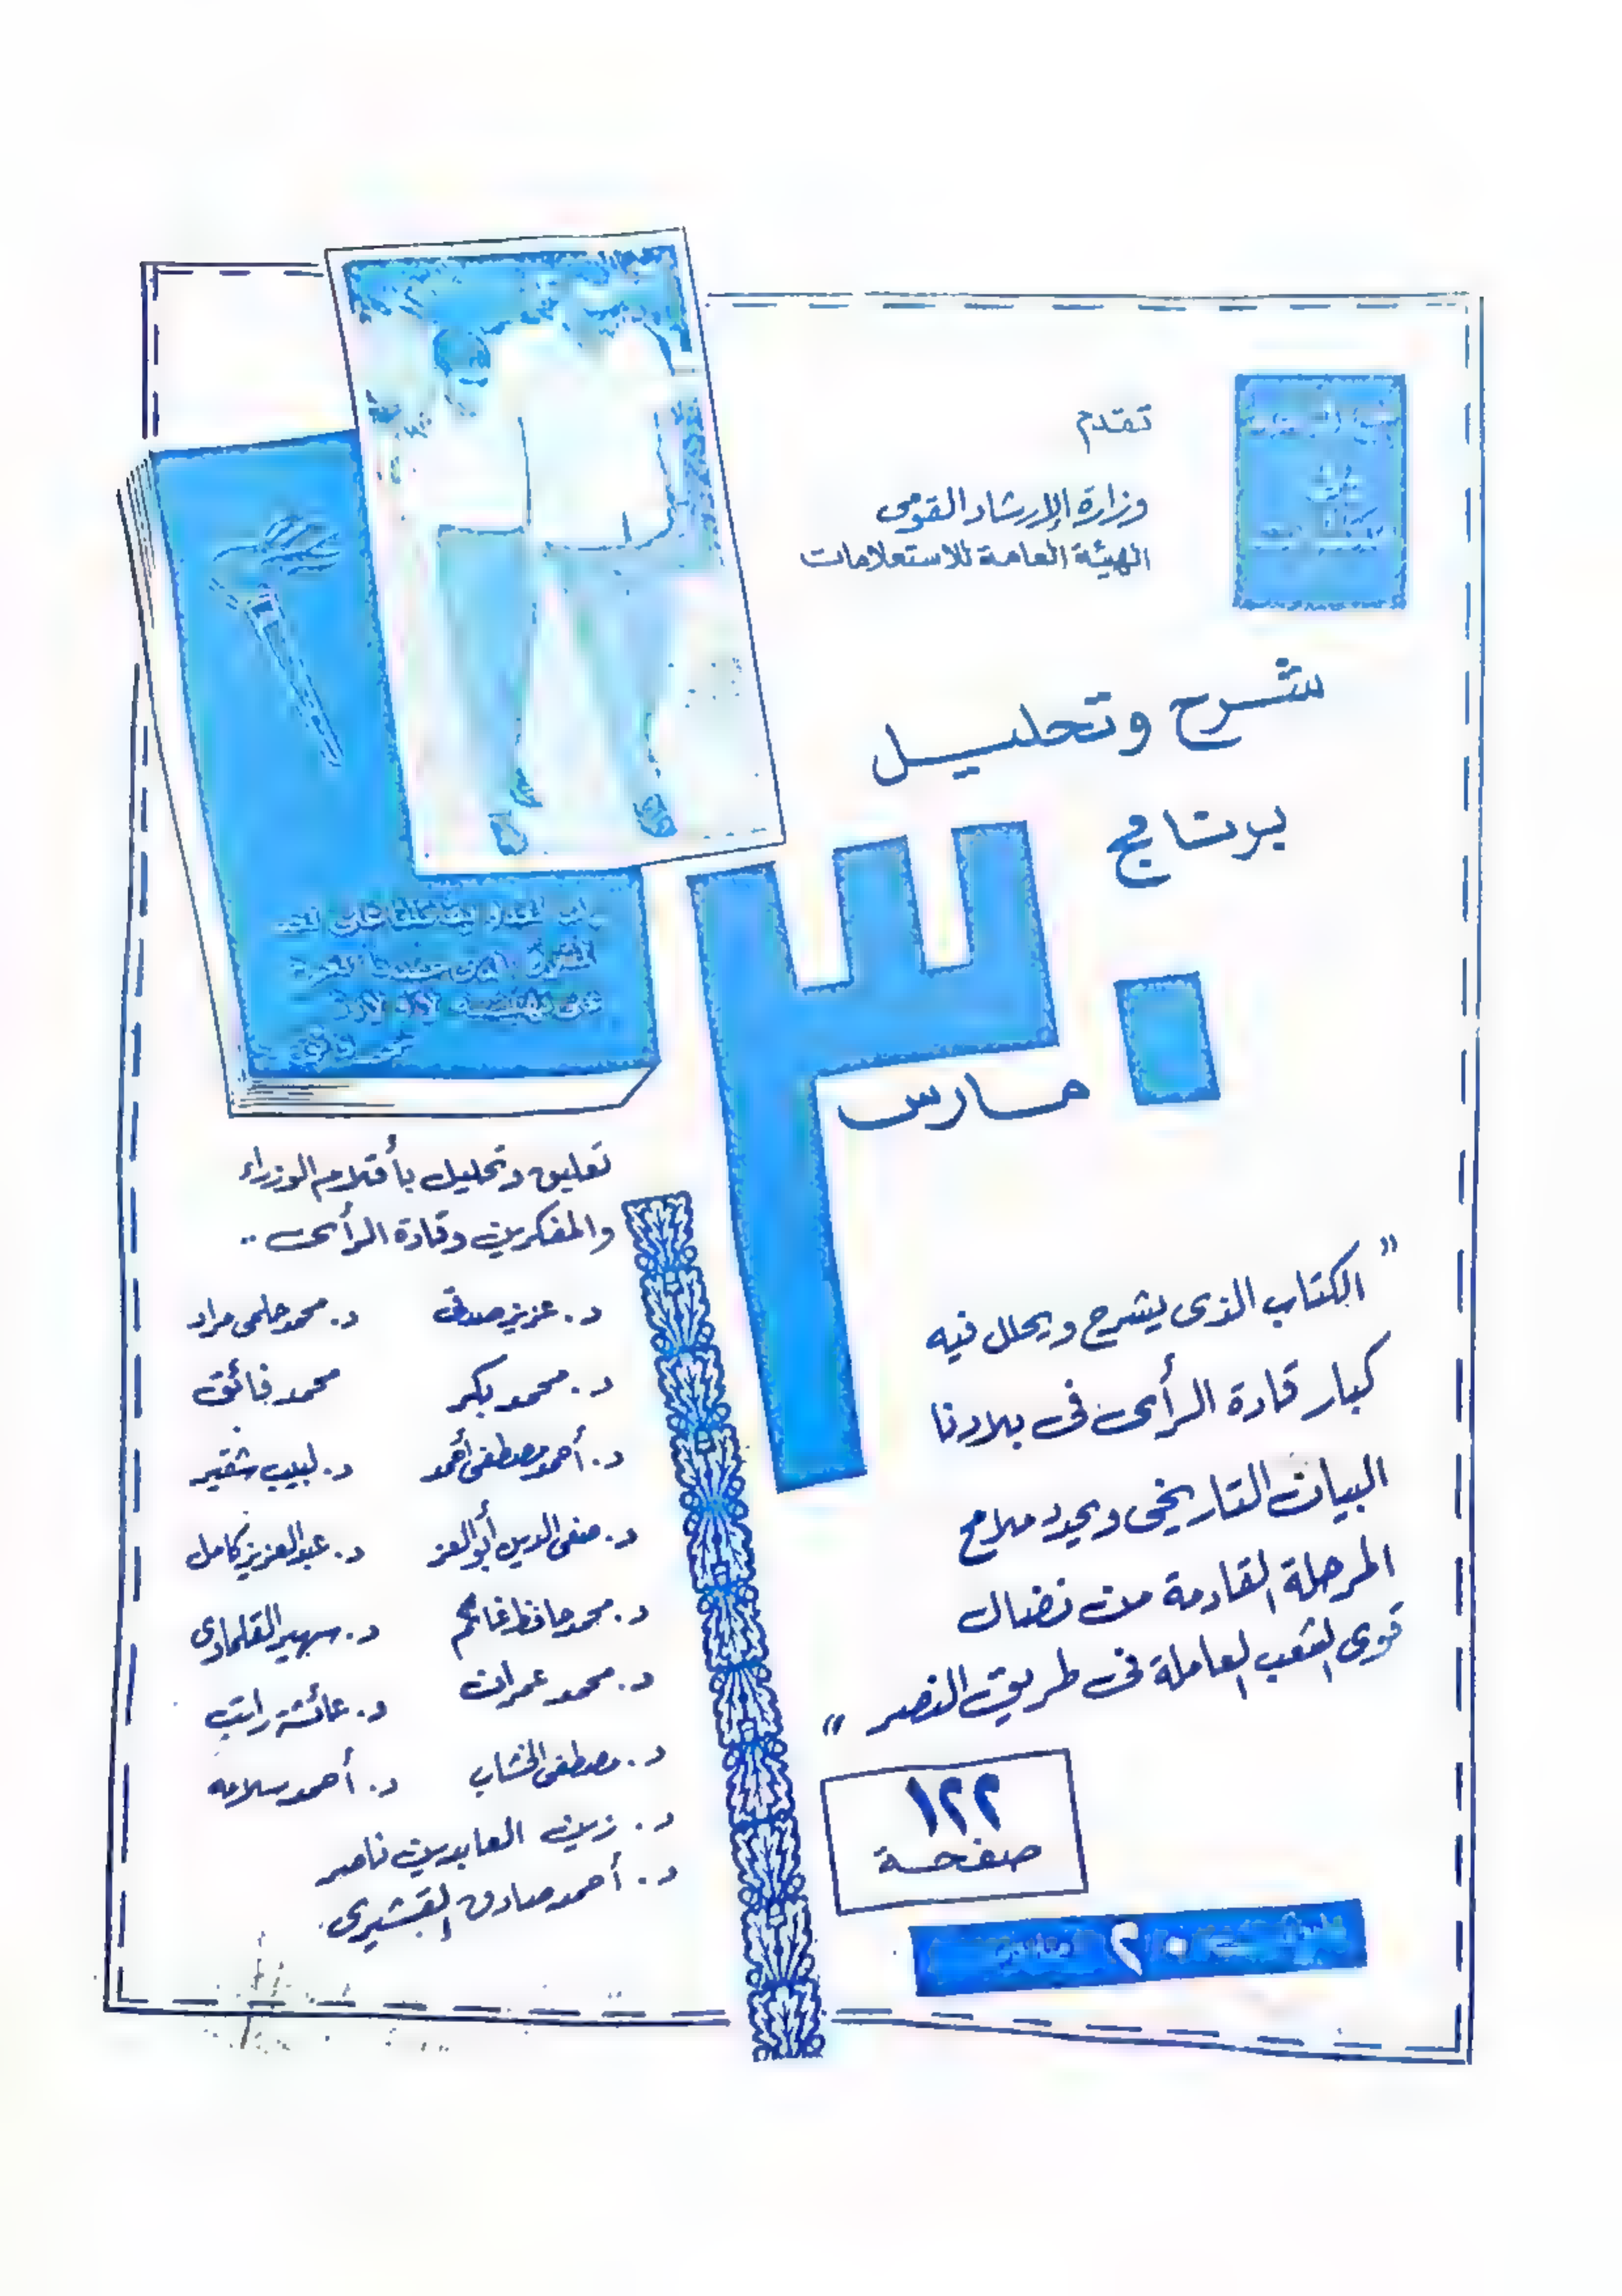 تقدم
وزارة الإرشاد القومى
الهيئة العامة للاستعلامات
شرح وتحليل
برنامج
٣٠
مارس
" الكتاب الذى يشرح ويحلل فيه
كبار قادة الرأى فى بلادنا
البيان التاريخى ويحدد ملامح
المرحلة القادمة من نضال
قوى الشعب العاملة فى طريق النصر "
١٢٢
صفحة
٢٠
تعليق وتحليل بأقلام الوزراء
والمفكرين وقادة الرأى ..
د. عزيز صدقى د. محمد حلمى مراد
د. محمد بكر محمد فائق
د. أحمد مصطفى أحمد د. لبيب شقير
د. صفى الدين أبوالعز د. عبدالعزيز كامل
د. محمد حافظ غانم د. سهير القلماوى
د. محمد عمران د. عائشة راتب
د. مصطفى الخشاب د. أحمد سلامه
د. زين العابدين ناصر
د. أحمد صادق القشيرى